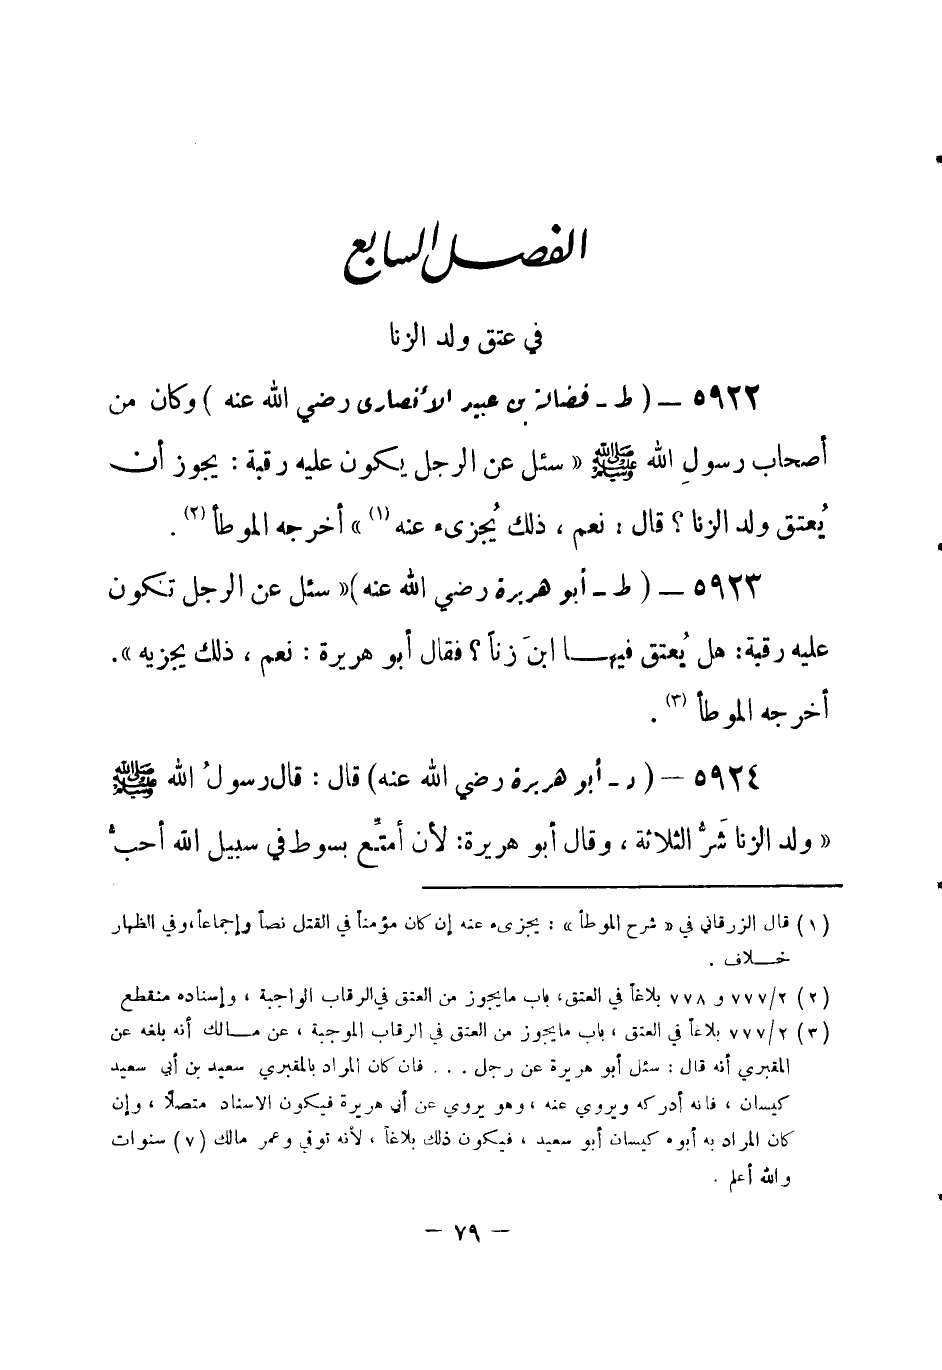 الفصل السابع
في عتق ولد الزنا
٥٩٢٢ — ( ط - فضالة بن عبيد الأنصاري رضي الله عنه ) وكان من
أصحاب رسولِ الله ﷺ « سئل عن الرجل يكون عليه رقبة : يجوز أن
يُعتق ولد الزنا ؟ قال : نعم ، ذلك يُجزىء عنه (١) » أخرجه الموطأ (٢) .
٥٩٢٣ — ( ط - أبو هريرة رضي الله عنه )« سئل عن الرجل تكون
عليه رقبة: هل يُعتق فيها ابنَ زناً ؟ فقال أبو هريرة : نعم ، ذلك يجزيه ».
أخرجه الموطأ (٣) .
٥٩٢٤ — ( د - أبو هريرة رضي الله عنه) قال : قال رسولُ الله ﷺ
« ولد الزنا شَرُّ الثلاثة ، وقال أبو هريرة: لأن أمتِّع بسوط في سبيل الله أحبُّ
(١) قال الزرقاني في « شرح الموطأ » : يجزىء عنه إن كان مؤمناً في القتل نصاً وإجماعاً،وفي الظهار
خلاف .
(٢) ٧٧٧/٢ و ٧٧٨ بلاغاً في العتق، باب مايجوز من العتق في الرقاب الواجبة ، وإسناده منقطع
(٣) ٧٧٧/٢ بلاغاً في العتق ، باب مايجوز من العتق في الرقاب الموجبة ، عن مالك أنه بلغه عن
المقبري أنه قال : سئل أبو هريرة عن رجل ... فان كان المراد بالمقبري سعيد بن أبي سعيد
كيسان ، فانه أدركه ويروي عنه ، وهو يروي عن أبي هريرة فيكون الاسناد متصلاً ، وإن
كان المراد به أبوه كيسان أبو سعيد ، فيكون ذلك بلاغاً ، لأنه توفي وعمر مالك (٧) سنوات
والله أعلم .
— ٧٩ —